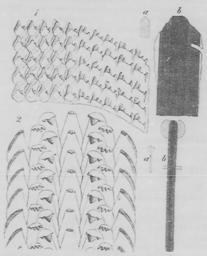 1
a
b
2
a
b